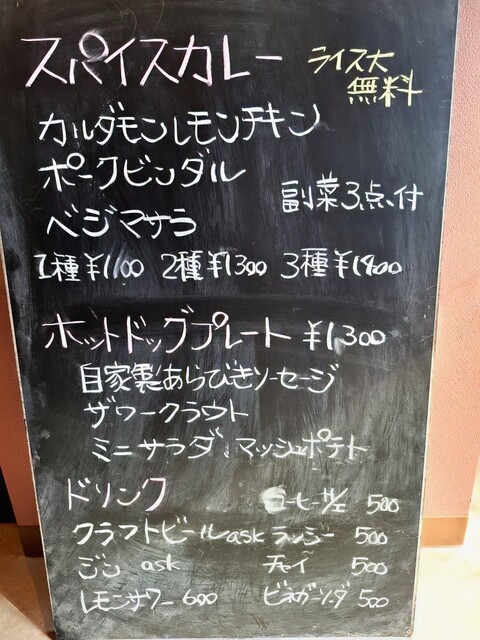 スパイスカレー ライス大
無料
カルダモンレモンチキン
ポークビンダル
副菜3点付
ベジマサラ
1種¥1100 2種¥1300 3種¥1400
ホットドッグプレート ¥1,300
自家製あらびきソーセージ
ザワークラウト
ミニサラダ、マッシュポテト
ドリンク コーヒーH/I 500
クラフトビール ask ラッシー 500
ジン ask チャイ 500
レモンサワー 600 ビネガーソーダ 500